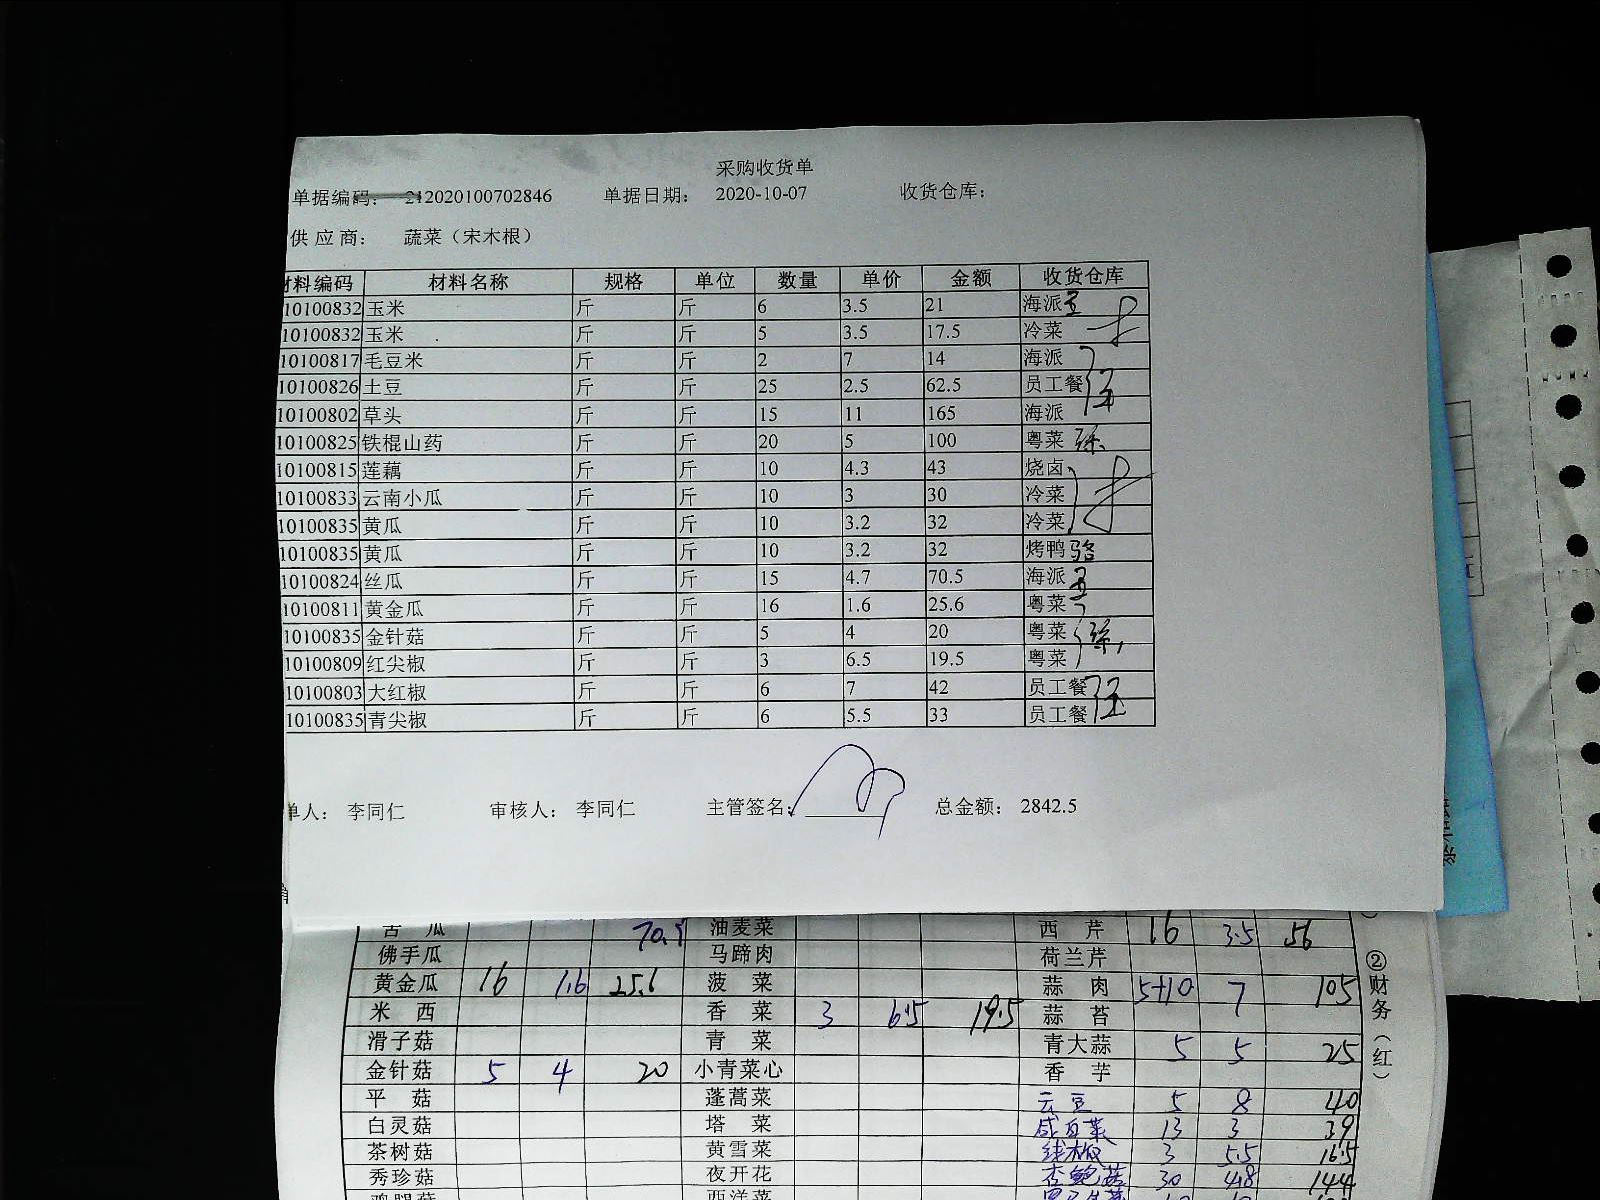 采购收货单
单据编码: 212020100702846 单据日期: 2020-10-07 收货仓库:
供应商: 蔬菜（宋木根）
材料编码 材料名称 规格 单位 数量 单价 金额 收货仓库
10100832 玉米 斤 斤 6 3.5 21 海派
10100832 玉米 斤 斤 5 3.5 17.5 冷菜
10100817 毛豆米 斤 斤 2 7 14 海派
10100826 土豆 斤 斤 25 2.5 62.5 员工餐
10100802 草头 斤 斤 15 11 165 海派
10100825 铁棍山药 斤 斤 20 5 100 粤菜
10100815 莲藕 斤 斤 10 4.3 43 烧卤
10100833 云南小瓜 斤 斤 10 3 30 冷菜
10100835 黄瓜 斤 斤 10 3.2 32 冷菜
10100835 黄瓜 斤 斤 10 3.2 32 烤鸭 骆
10100824 丝瓜 斤 斤 15 4.7 70.5 海派
10100811 黄金瓜 斤 斤 16 1.6 25.6 粤菜
10100835 金针菇 斤 斤 5 4 20 粤菜
10100809 红尖椒 斤 斤 3 6.5 19.5 粤菜
10100803 大红椒 斤 斤 6 7 42 员工餐
10100835 青尖椒 斤 斤 6 5.5 33 员工餐
单人: 李同仁 审核人: 李同仁 主管签名: 总金额: 2842.5
苦瓜 油麦菜 西芹 16 3.5 56
佛手瓜 马蹄肉 荷兰芹
黄金瓜 16 1.6 25.6 菠菜 蒜肉 5+10 7 105
米西 香菜 3 6.5 19.5 蒜苔
滑子菇 青菜 青大蒜 5 5 25
金针菇 5 4 20 小青菜心 香芋
平菇 蓬蒿菜 云豆 5 8 40
白灵菇 塔菜 咸白菜 13 3 39
茶树菇 黄雪菜 3 5.5 16.5
秀珍菇 夜开花 杏鲍菇 30 4.8 144
鸡腿菇 西洋菜
②财务（红）